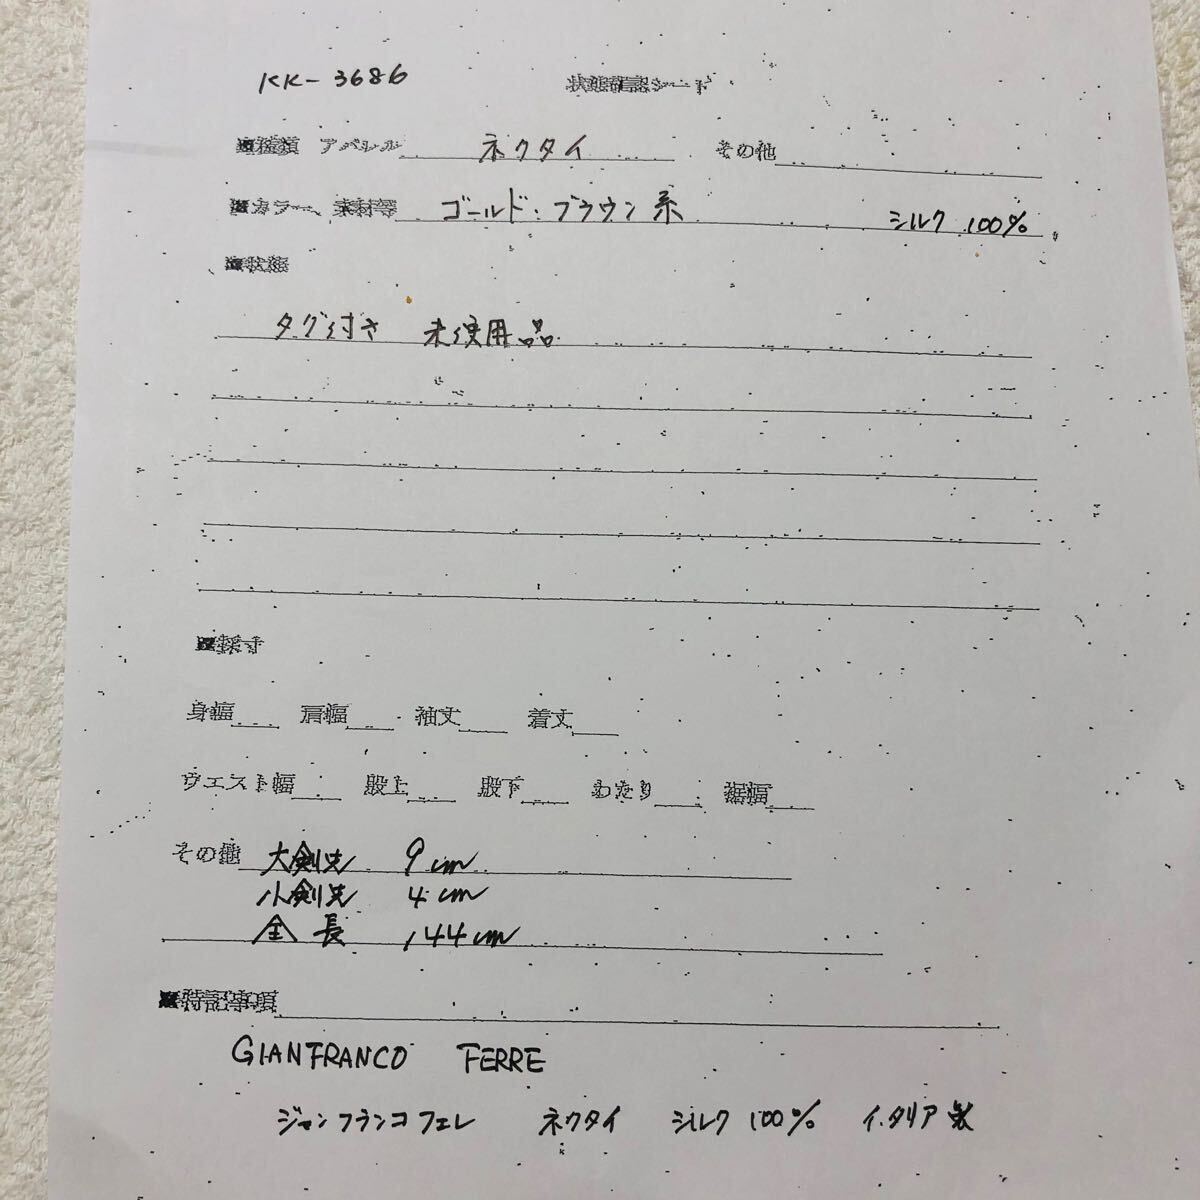 KK-3686 状態確認シート
■種類 アパレル ネクタイ その他
■カラー、素材等 ゴールド・ブラウン系 シルク 100%
■状態
タグ付き 未使用品
■採寸
身幅 肩幅 袖丈 着丈
ウエスト幅 股上 股下 わたり 裾幅
その他 大剣先 9cm
小剣先 4cm
全長 144cm
■特記事項
GIANFRANCO FERRE
ジャンフランコフェレ ネクタイ シルク 100% イタリア製